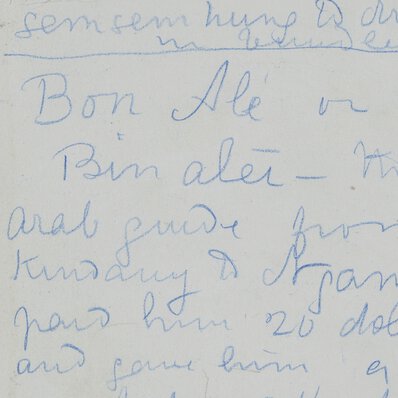 semsem hung to dr
in
Bon Alé or
Bin aleë —
arab guide from
Kindany to Ngam
paid him 20 dol
and gave him a